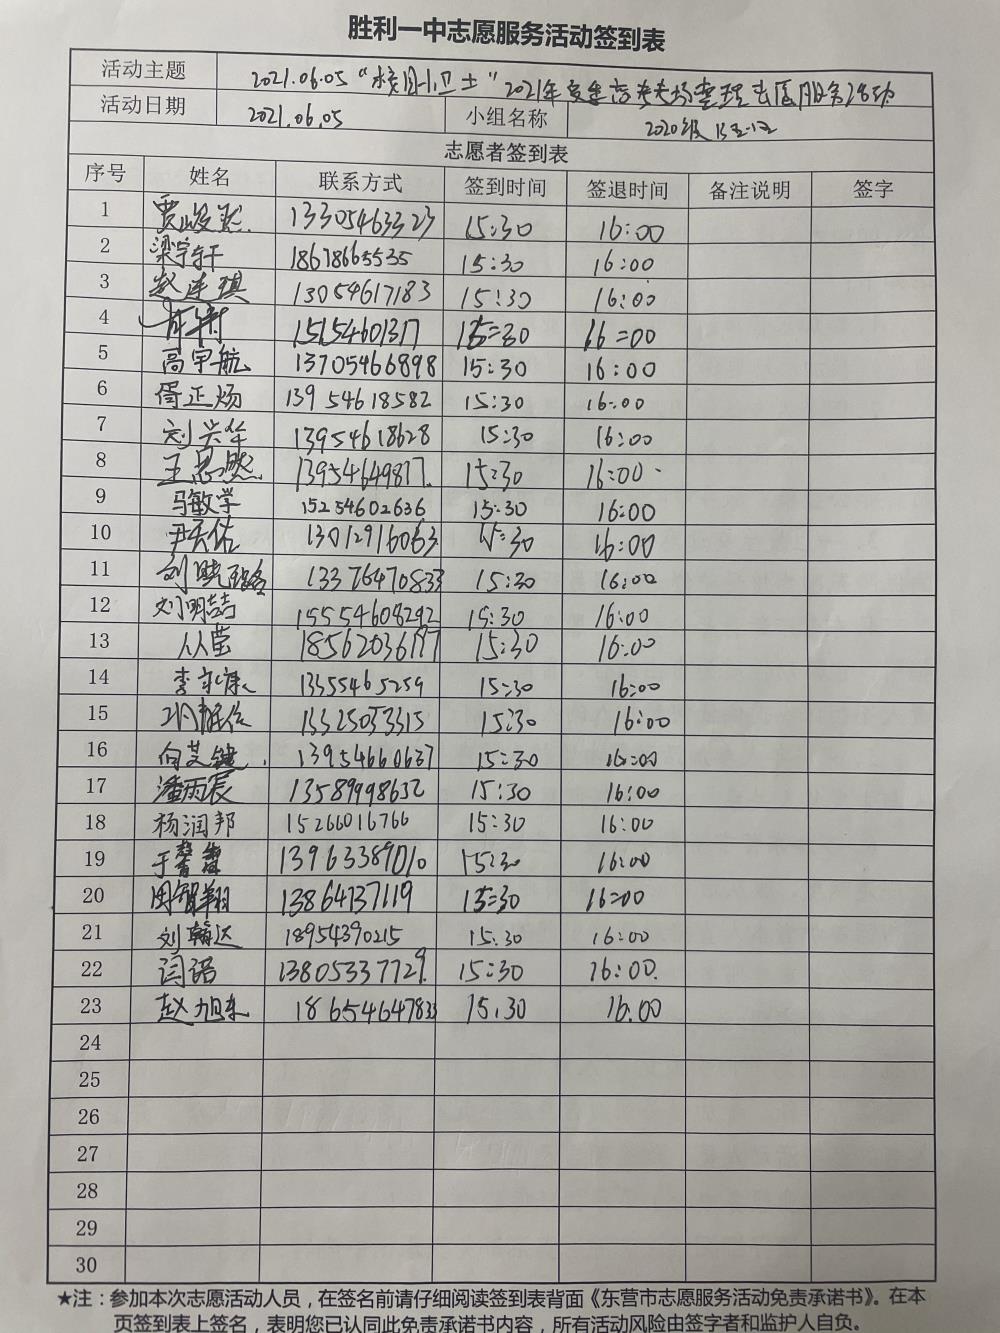 胜利一中志愿服务活动签到表
活动主题 2021.06.05“校园小卫士”2021年夏季高考考场整理志愿服务活动
活动日期 2021.06.05 小组名称 2020级
志愿者签到表
序号 姓名 联系方式 签到时间 签退时间 备注说明 签字
1 贾峻 13305463323 15:30 16:00
2 梁宇轩 18678665535 15:30 16:00
3 赵连琪 13054617183 15:30 16:00
4 15154601317 15:30 16:00
5 高宇航 13705466898 15:30 16:00
6 胥正炀 13954618582 15:30 16:00
7 刘兴华 13954618628 15:30 16:00
8 王思懿 13954649817 15:30 16:00
9 马敏学 15254602636 15:30 16:00
10 尹天佑 13012916063 15:30 16:00
11 刘晓 13376470833 15:30 16:00
12 刘明喆 15554608292 15:30 16:00
13 丛莹 18562036197 15:30 16:00
14 李 13355465259 15:30 16:00
15 15:30 16:00
16 向艾键 13954660637 15:30 16:00
17 潘雨辰 13589998632 15:30 16:00
18 杨润邦 15266016766 15:30 16:00
19 于馨 13963389010 15:30 16:00
20 周智翔 13864137119 15:30 16:00
21 刘翰达 18954390215 15:30 16:00
22 闫语 13805337729 15:30 16:00
23 赵旭东 18654647833 15:30 16:00
24
25
26
27
28
29
30
★注：参加本次志愿活动人员，在签名前请仔细阅读签到表背面《东营市志愿服务活动免责承诺书》。在本
页签到表上签名，表明您已认同此免责承诺书内容，所有活动风险由签字者和监护人自负。